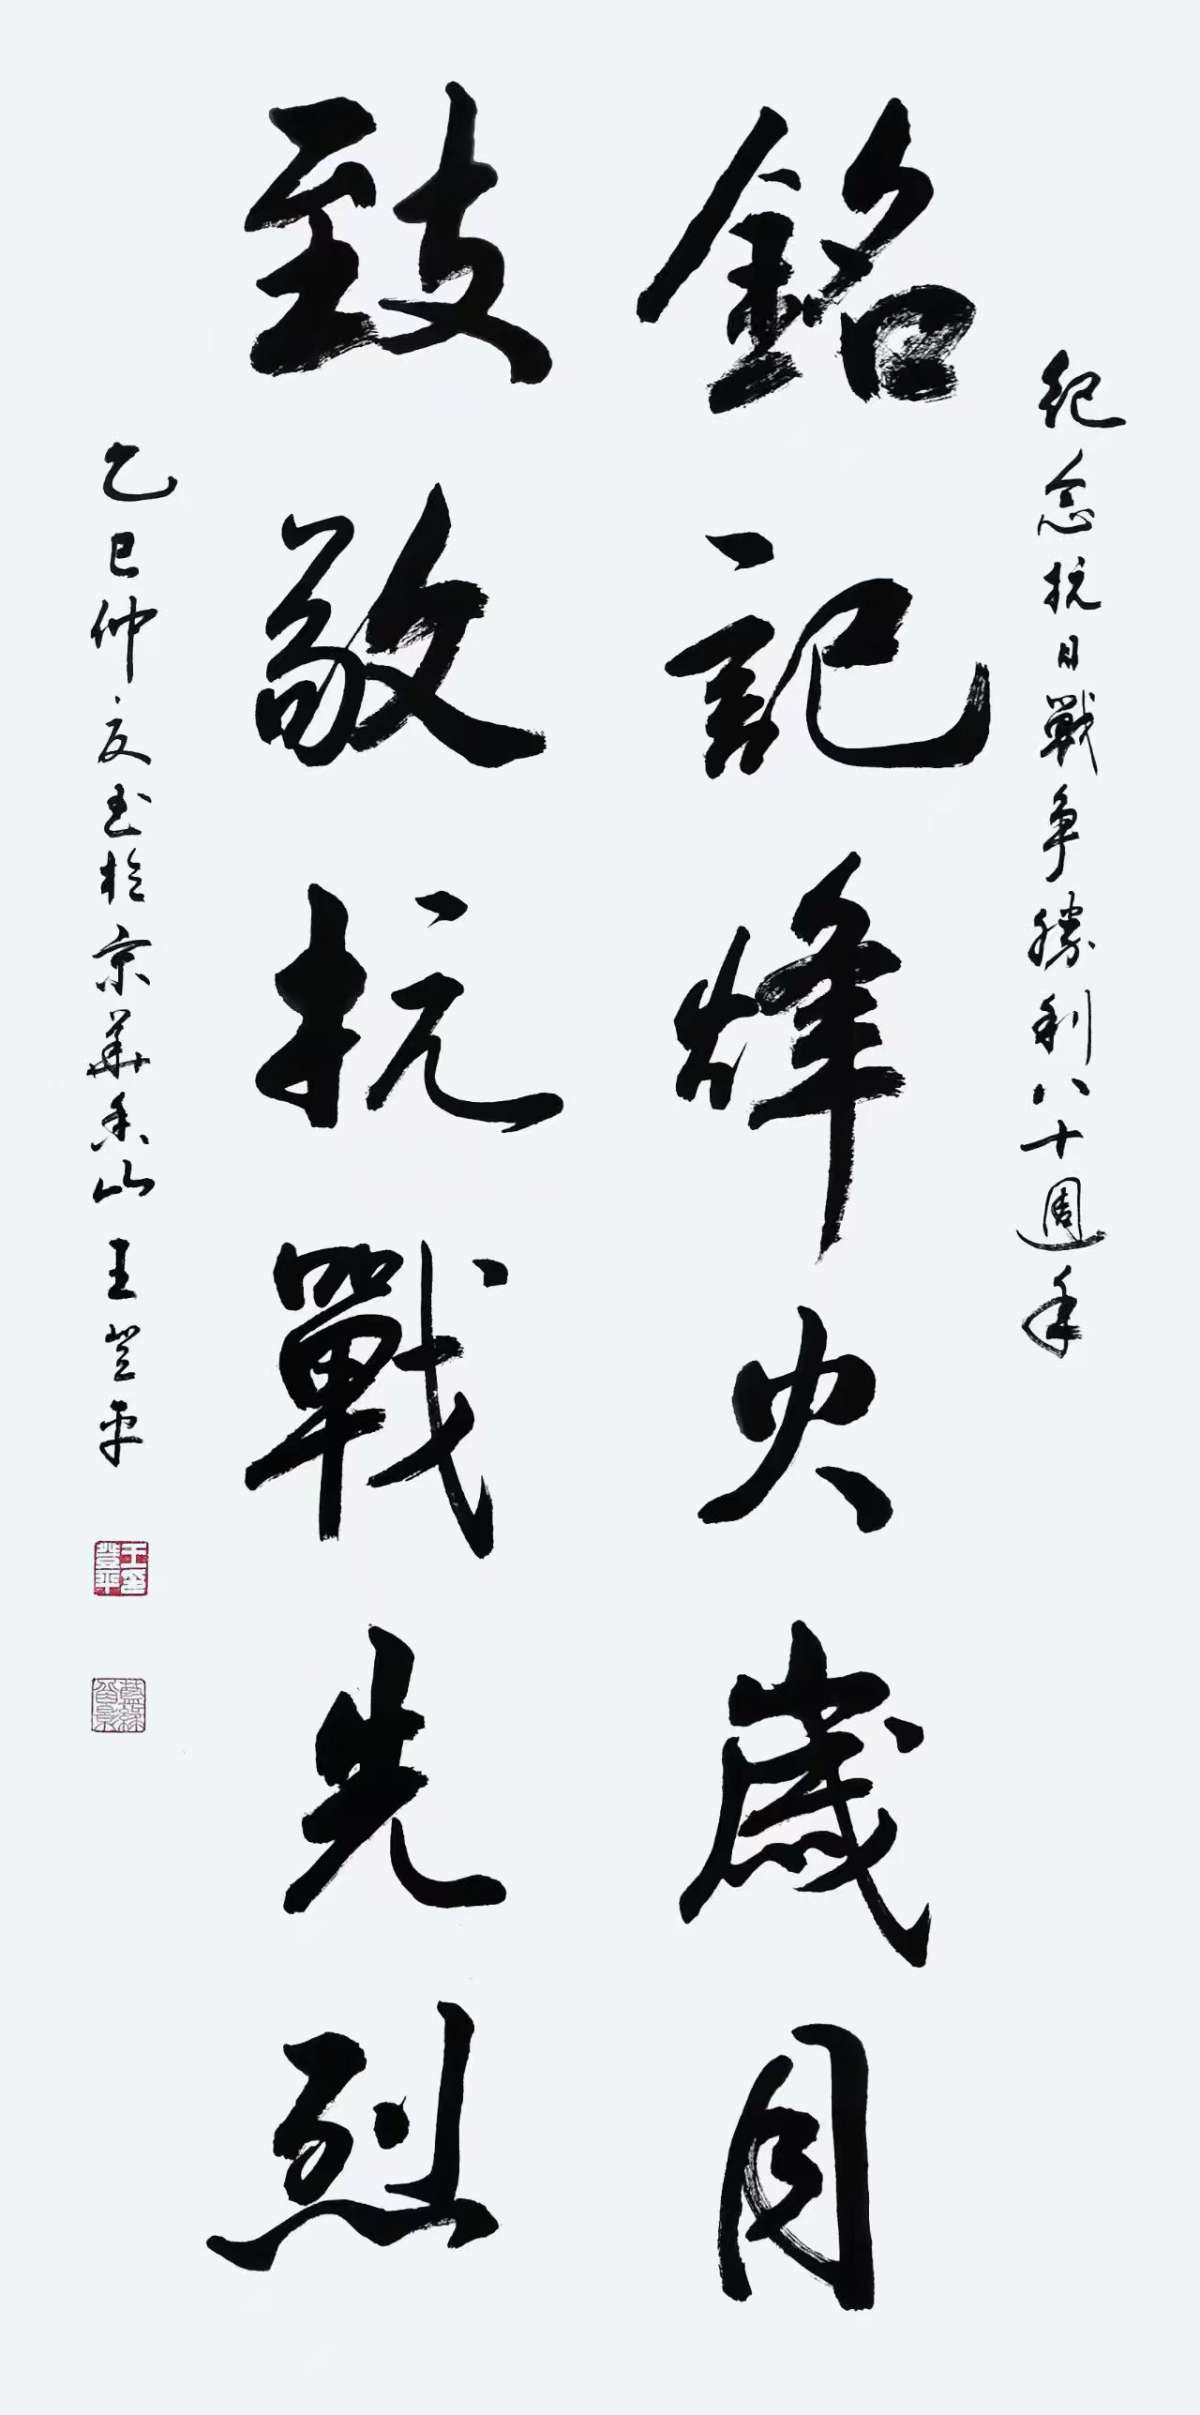 紀念抗日戰爭勝利八十週年
銘記烽火歲月
致敬抗戰先烈
乙巳仲夏書於京華香山王登平